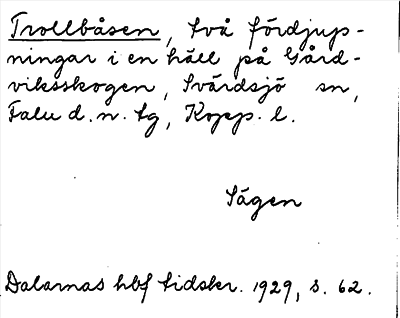 Trollbåsen, två fördjup-
ningar i en häll på Gård-
viksskogen, Svärdsjö sn,
Falu d. n. tg, Kopp. l.
Sägen
Dalarnas hbf tidskr. 1929, s. 62.